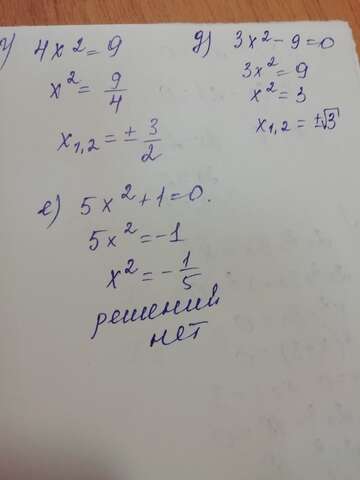 г) 4x² = 9
x² = 9/4
x₁,₂ = ± 3/2
д) 3x² - 9 = 0
3x² = 9
x² = 3
x₁,₂ = ±√3
е) 5x² + 1 = 0.
5x² = -1
x² = - 1/5
решений
нет